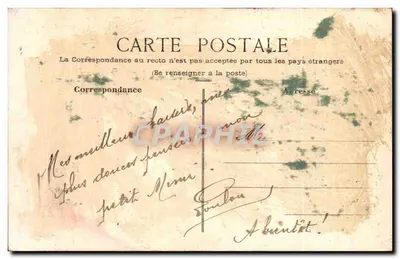 CARTE POSTALE
La Correspondance au recto n'est pas acceptée par tous les pays étrangers
(Se renseigner à la poste)
Correspondance
Adresse
Mes meilleurs baisers, mes
plus douces pensées
à mon
petit Mimi
Loulou
A bientôt!